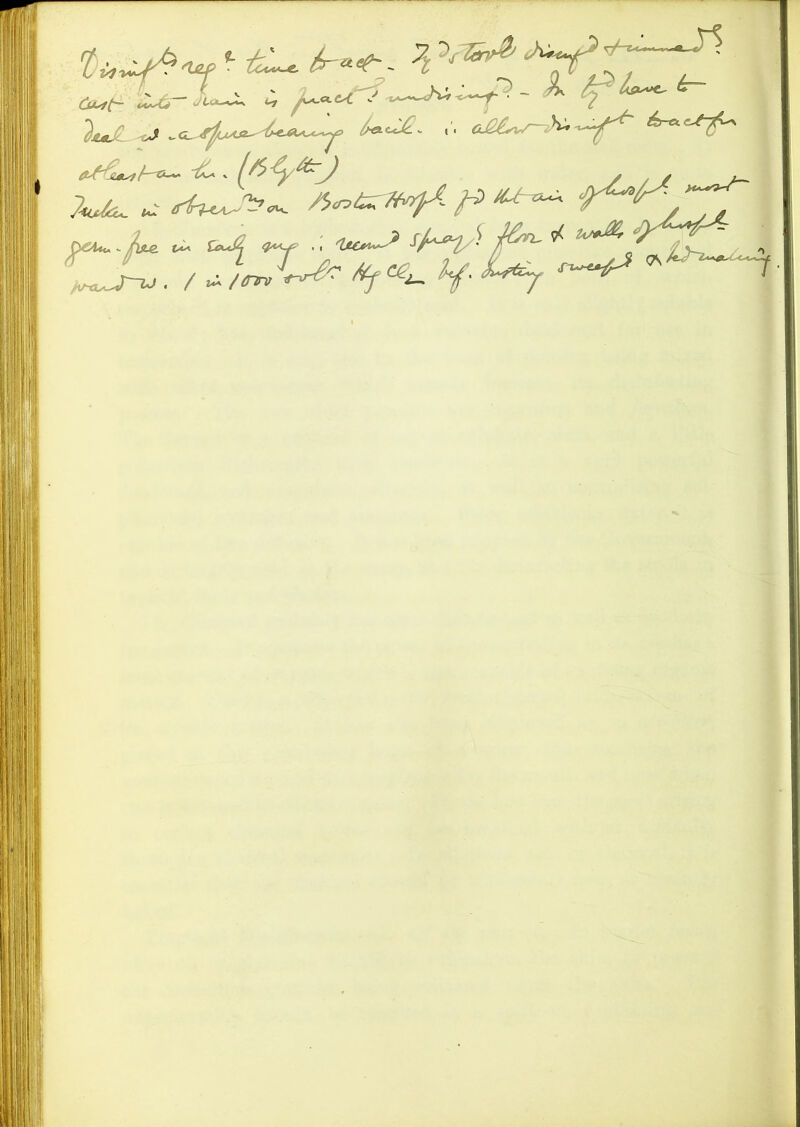 Disinfts req time to act. If stool disinfd & immedy
cast into drain is practy undisinfd. In ty have to
deal wd a spore-bearing bacil. ∴ allow disinft to act for
at least an hr. (Blyth)
Tucker in observns on Boston Hospl fd tht air of hospl most
germ-free in early mg ∴ recomd sprayg floor & walls of hospl
ward w. 1 in 1000 soln Hg Cl2 bef. dusting sweepg or bedmaking.